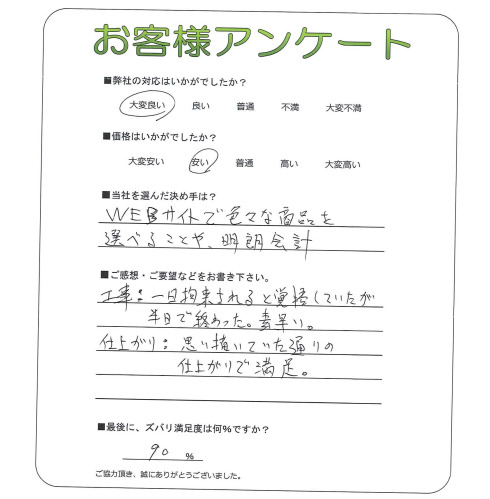 お客様アンケート
■弊社の対応はいかがでしたか？
大変良い 良い 普通 不満 大変不満
■価格はいかがでしたか？
大変安い 安い 普通 高い 大変高い
■当社を選んだ決め手は？
WEBサイトで色々な商品を
選べることや、明朗会計
■ご感想・ご要望などをお書き下さい。
工事：一日拘束されると覚悟していたが
半日で終わった。素早い。
仕上がり：思い描いていた通りの
仕上がりで満足。
■最後に、ズバリ満足度は何％ですか？
90 ％
ご協力頂き、誠にありがとうございました。